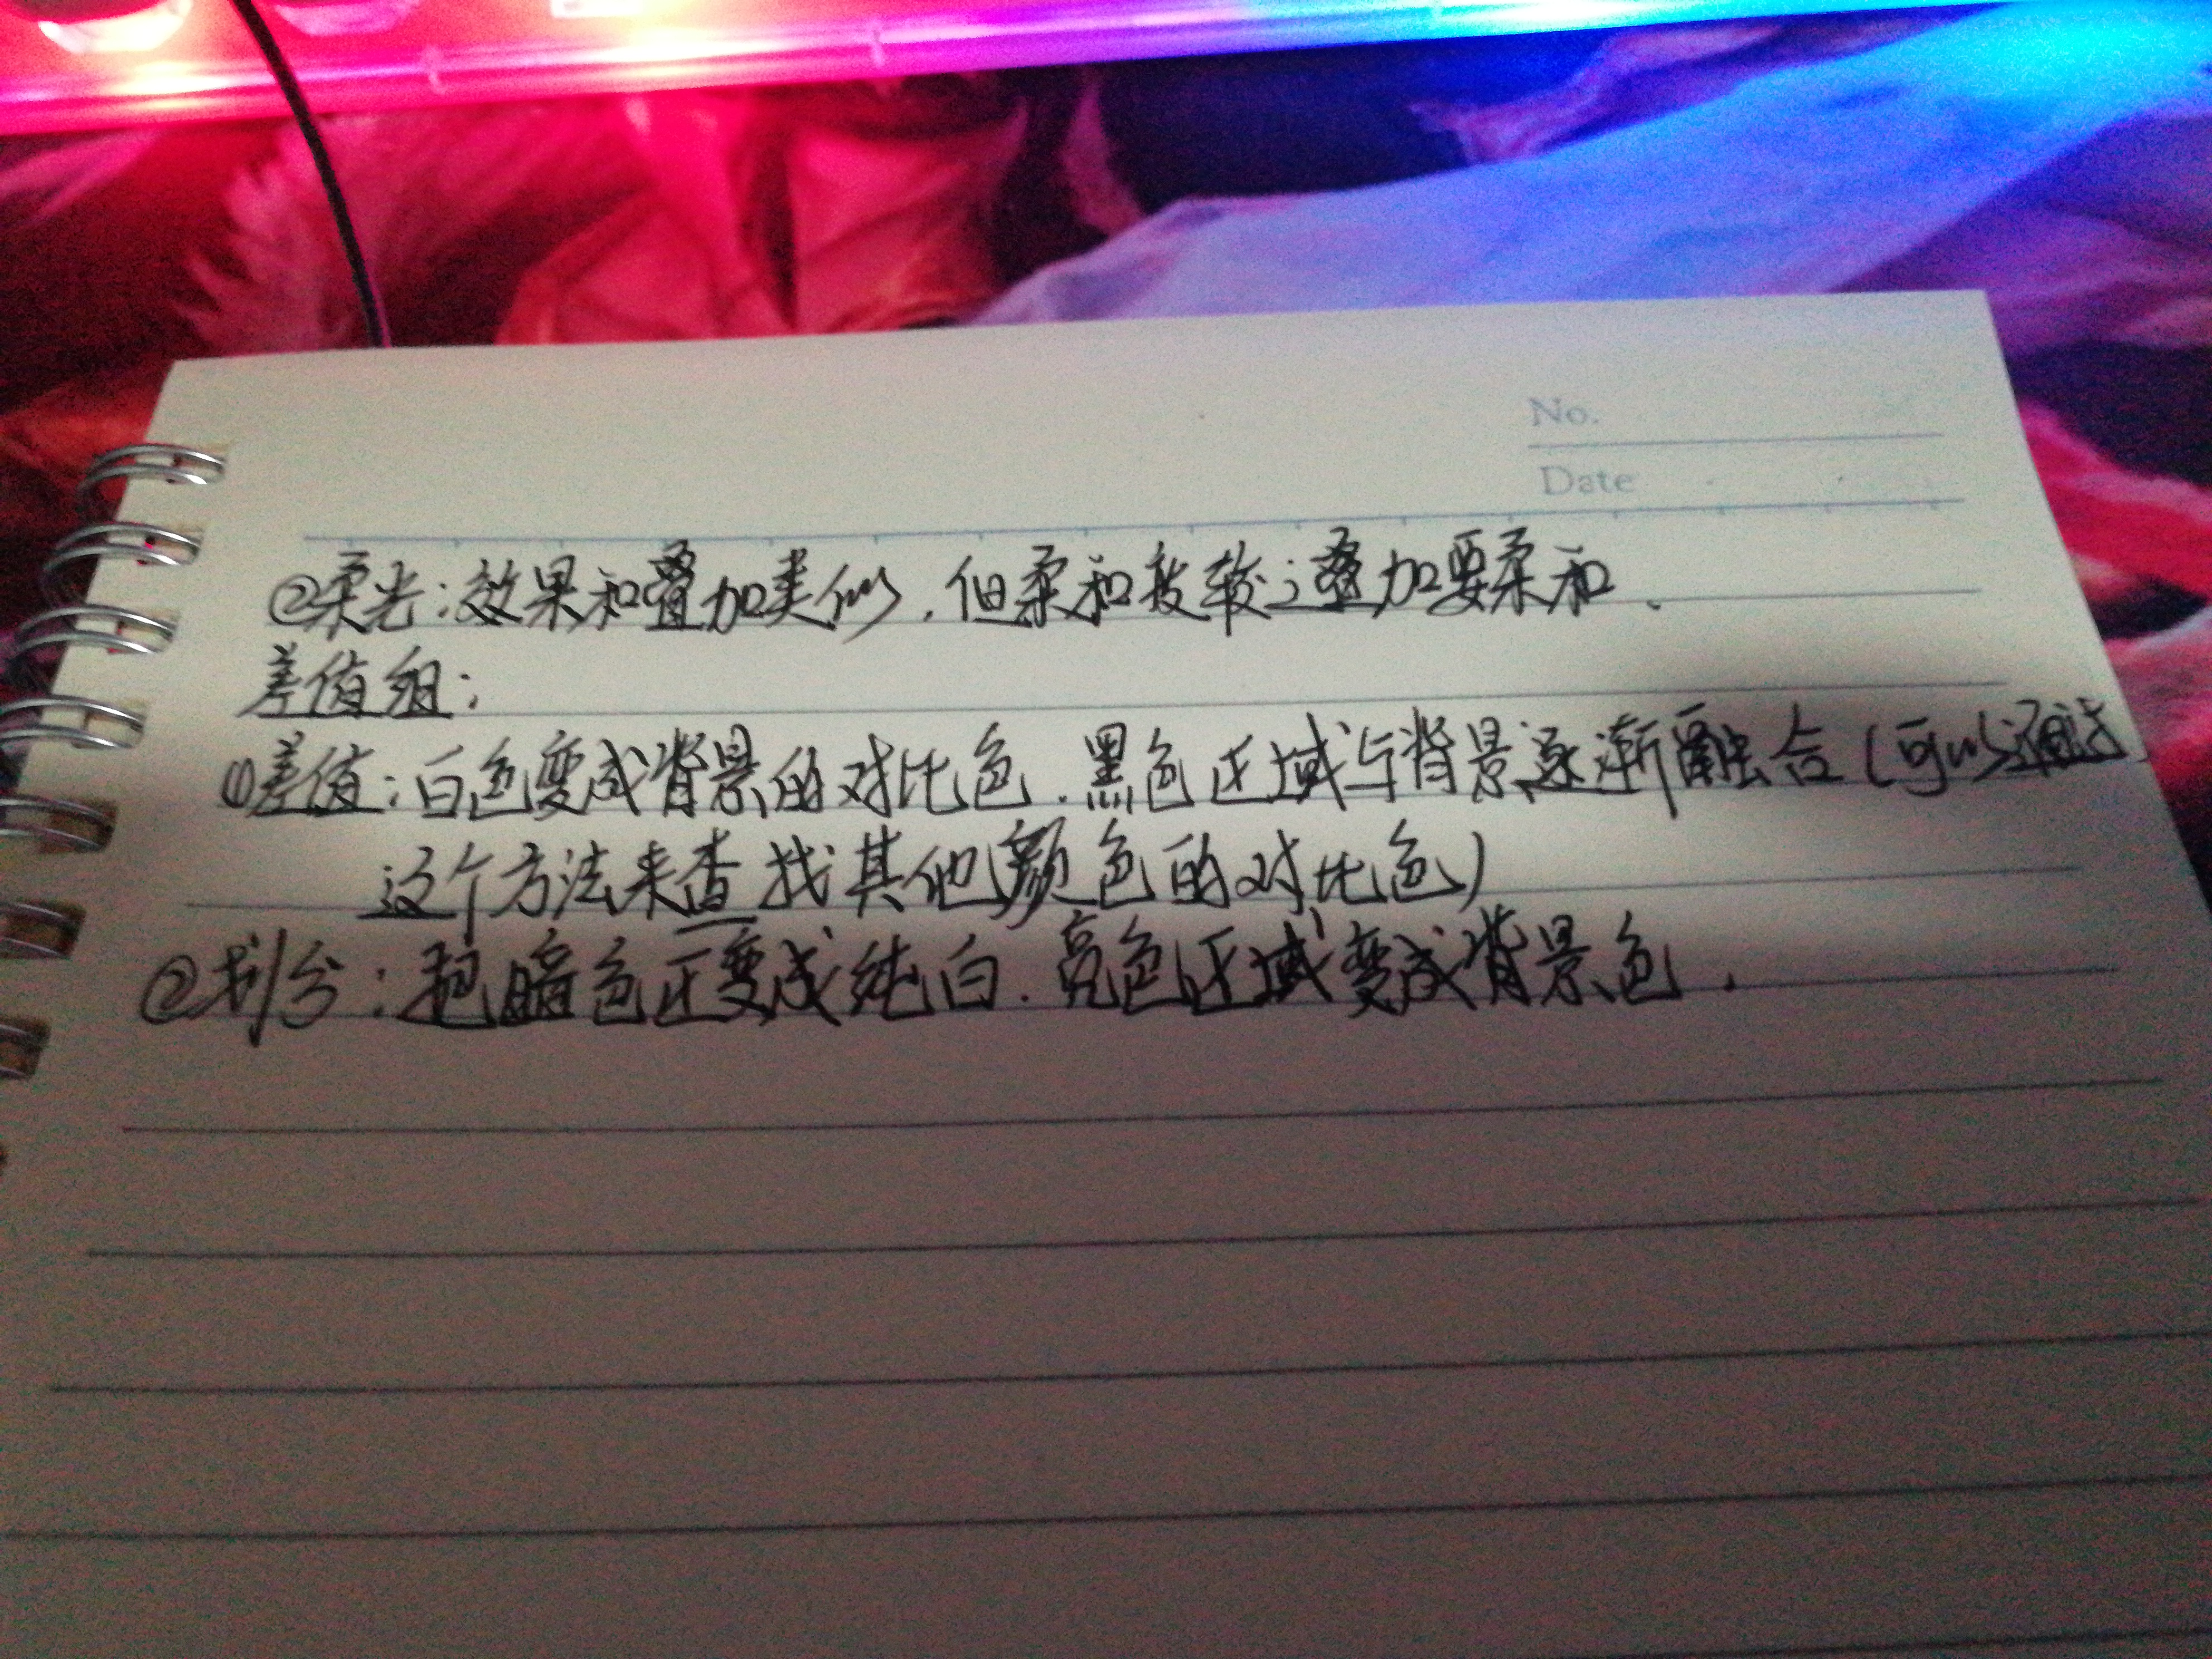 No.
Date
②柔光：效果和叠加类似，但柔和度较之叠加要柔和.
差值组：
①差值：白色变成背景的对比色.黑色区域与背景逐渐融合（可以通过
这个方法来查找其他颜色的对比色）
②划分：把暗色区变成纯白.亮色区域变成背景色.